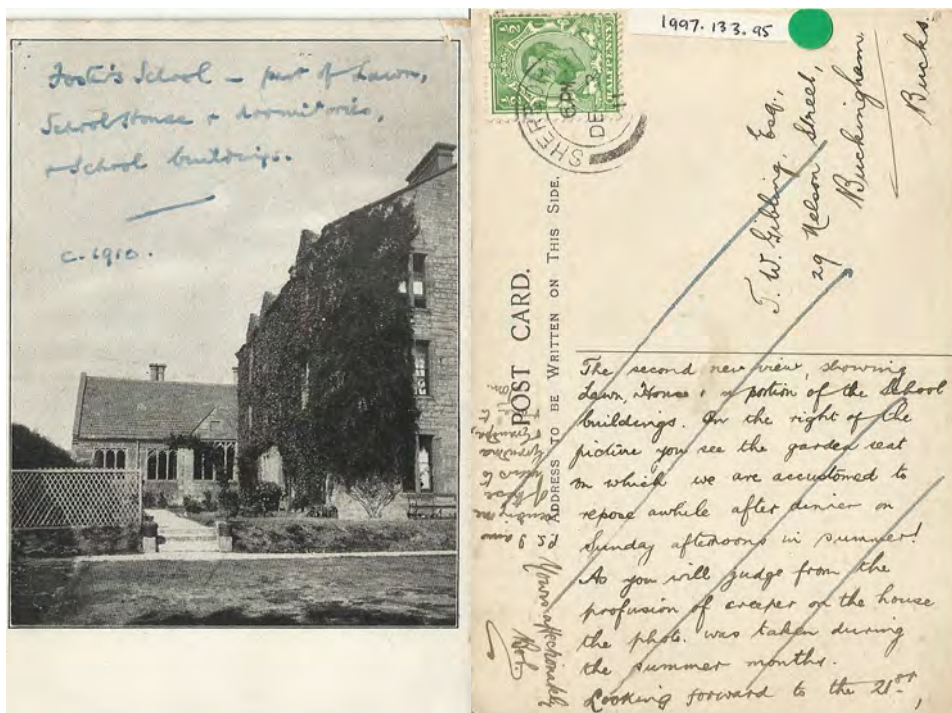 Foster's School — part of Lawn,
School House + dormitories,
+ School buildings.
c. 1910.
1997.133.95
SHERBORNE
6 PM
DE
11
HALFPENNY
POST CARD.
ADDRESS TO BE WRITTEN ON THIS SIDE.
T. W. Gibling, Esq.,
29 Nelson Street,
Buckingham.
Bucks.
The second new view, showing
Lawn, House & a portion of the School
buildings. On the right of the
picture you see the garden seat
on which we are accustomed to
repose awhile after dinner on
Sunday afternoons in summer!
As you will judge from the
profusion of creeper on the house
the photo. was taken during
the summer months.
Looking forward to the 21st,
Yours affectionately
P.S. I am
sending